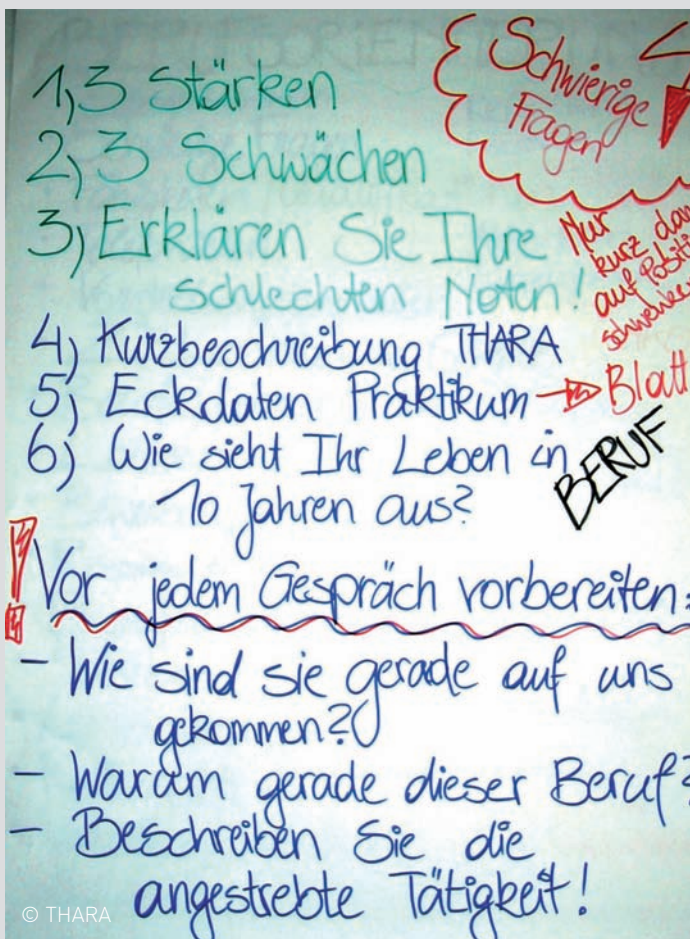 Schwierige
Fragen
1, 3 Stärken
2, 3 Schwächen
3, Erklären Sie Ihre
schlechten Noten!
Nur
kurz
auf
schwenken
4) Kurzbeschreibung THARA
5) Eckdaten Praktikum → Blatt
6) Wie sieht Ihr Leben in
10 Jahren aus?
BERUF
! Vor jedem Gespräch vorbereiten:
- Wie sind sie gerade auf uns
gekommen?
- Warum gerade dieser Beruf?
- Beschreiben Sie die
angestrebte Tätigkeit!
© THARA